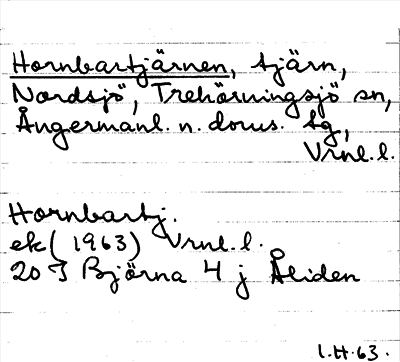 Hornbartjärnen, tjärn,
Nordsjö, Trehörningsjö sn,
Ångermanl. n. doms. tg,
Vrnl. l.
Hornbartj.
ek (1963) Vrnl. l.
20 J Björna 4 j Åliden
I.H. 63.